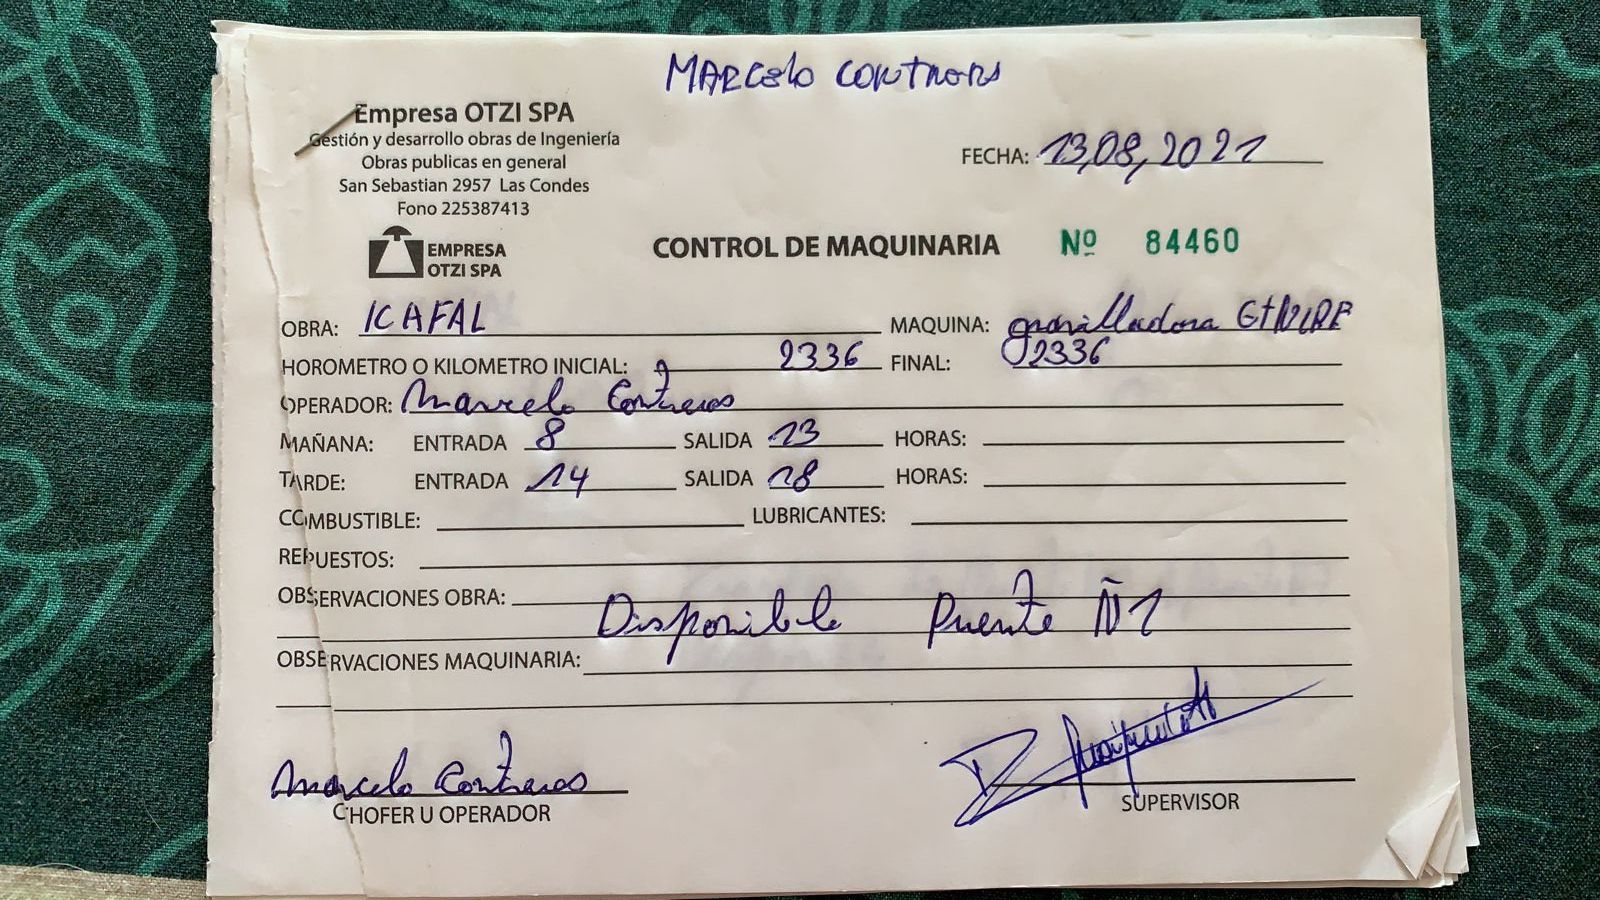 MARCelo CONTRERAS
Empresa OTZI SPA
Gestión y desarrollo obras de Ingeniería
Obras publicas en general
San Sebastian 2957 Las Condes
Fono 225387413
EMPRESA
OTZI SPA
FECHA: 13,08,2021
CONTROL DE MAQUINARIA Nº 84460
OBRA: ICAFAL MAQUINA: gravilladora
HOROMETRO O KILOMETRO INICIAL: 2336 FINAL: 2336
OPERADOR: Marcelo Contreras
MAÑANA: ENTRADA 8 SALIDA 13 HORAS:
TARDE: ENTRADA 14 SALIDA 18 HORAS:
COMBUSTIBLE: LUBRICANTES:
REPUESTOS:
OBSERVACIONES OBRA:
Disponible Puente Ñ1
OBSERVACIONES MAQUINARIA:
Marcelo Contreras
CHOFER U OPERADOR
SUPERVISOR